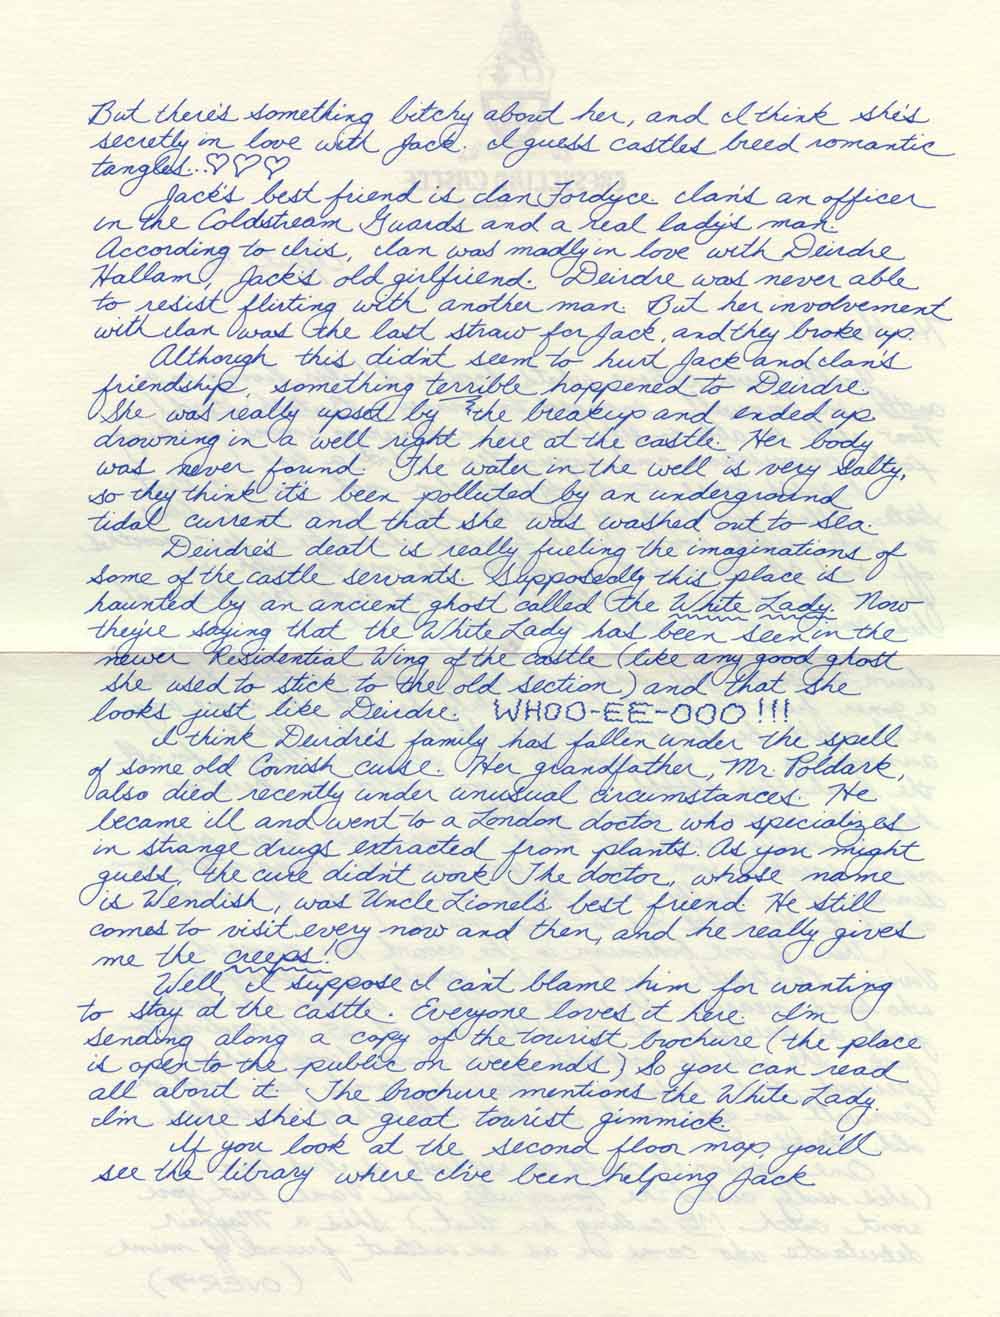 But there's something bitchy about her, and I think she's
secretly in love with Jack. I guess castles breed romantic
tangles...♡♡♡
Jack's best friend is Ian Fordyce. Ian's an officer
in the Coldstream Guards and a real lady's man.
According to Iris, Ian was madly in love with Deirdre
Hallam, Jack's old girlfriend. Deirdre was never able
to resist flirting with another man. But her involvement
with Ian was the last straw for Jack, and they broke up.
Although this didn't seem to hurt Jack and Ian's
friendship, something terrible happened to Deirdre.
She was really upset by the breakup and ended up
drowning in a well right here at the castle. Her body
was never found. The water in the well is very salty,
so they think it's been polluted by an underground
tidal current and that she was washed out to sea.
Deirdre's death is really fueling the imaginations of
some of the castle servants. Supposedly this place is
haunted by an ancient ghost called the White Lady. Now
they're saying that the White Lady has been seen in the
newer Residential Wing of the castle (like any good ghost
she used to stick to the old section) and that she
looks just like Deirdre. WHOO-EE-OOO!!!
I think Deirdre's family has fallen under the spell
of some old Cornish curse. Her grandfather, Mr. Poldark,
also died recently under unusual circumstances. He
became ill and went to a London doctor who specializes
in strange drugs extracted from plants. As you might
guess, the cure didn't work. The doctor, whose name
is Wendish, was Uncle Lionel's best friend. He still
comes to visit every now and then, and he really gives
me the creeps!
Well, I suppose I can't blame him for wanting
to stay at the castle. Everyone loves it here. I'm
sending along a copy of the tourist brochure (the place
is open to the public on weekends) So you can read
all about it. The brochure mentions the White Lady.
I'm sure she's a great tourist gimmick.
If you look at the second floor map, you'll
see the library where I've been helping Jack
(OVER)